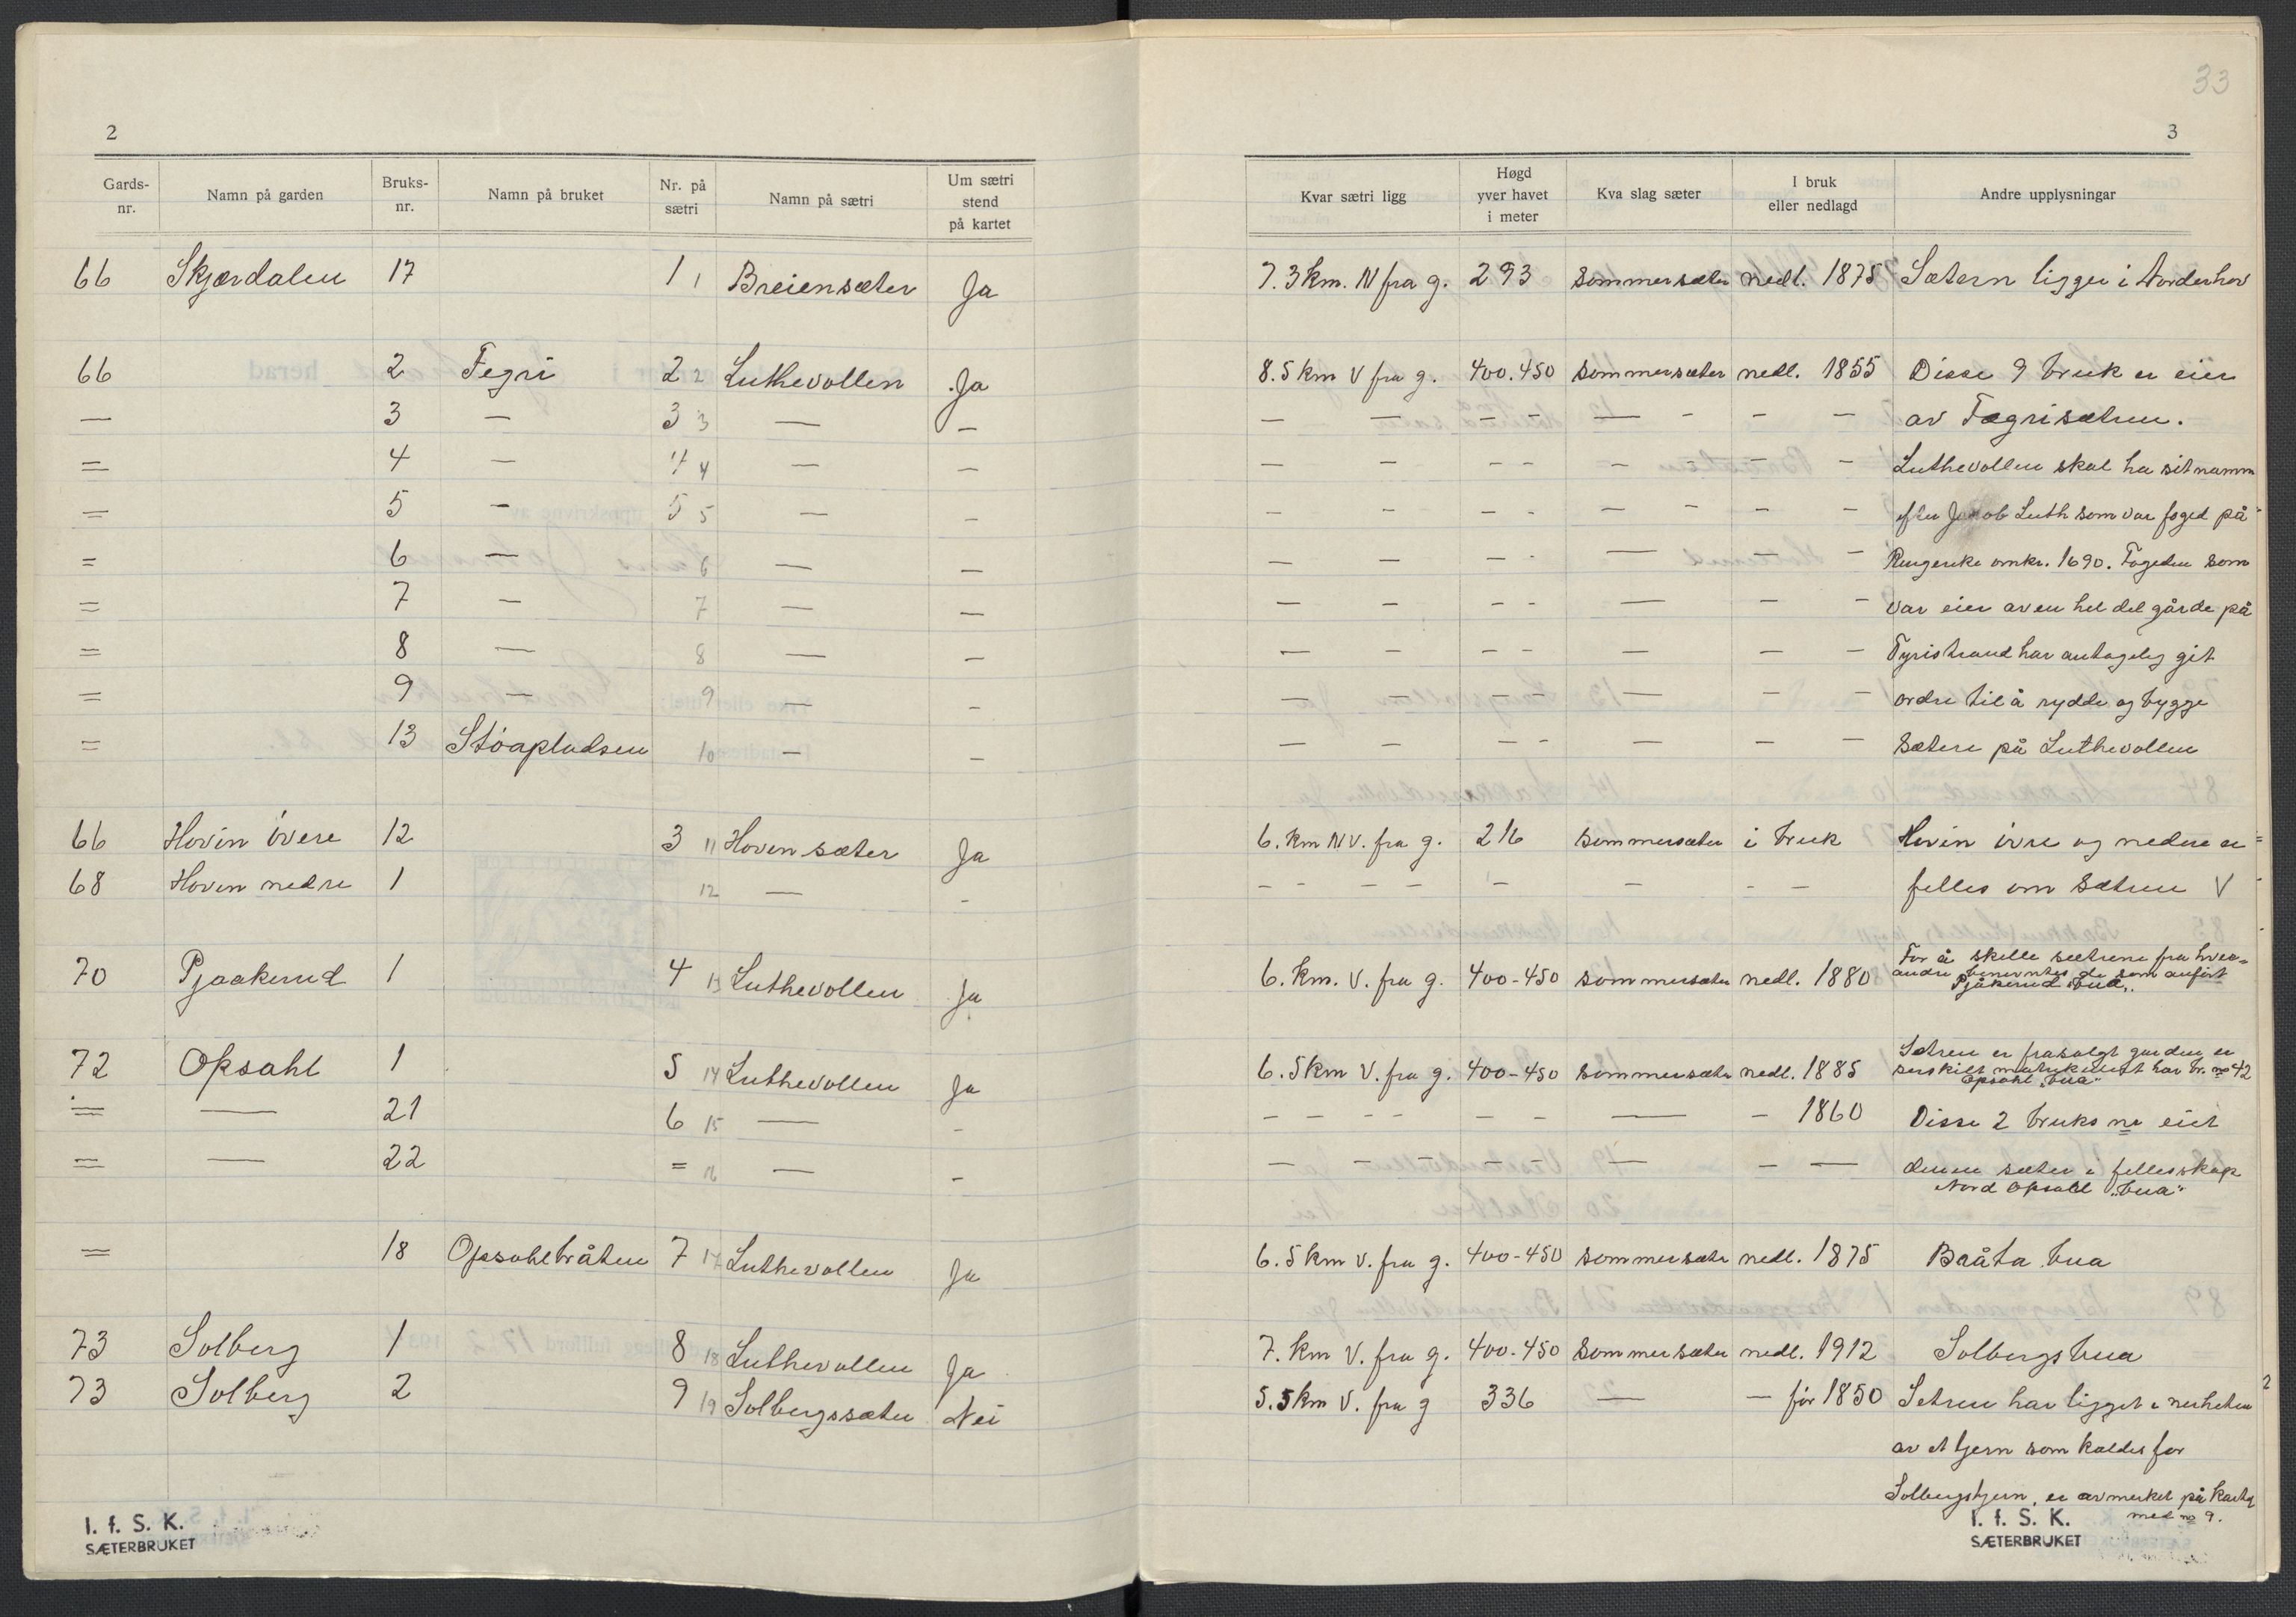 33
2
3
Gards-nr. Namn på garden Bruks-nr. Namn på bruket Nr. på sætri Namn på sætri Um sætri stend på kartet
Kvar sætri ligg Høgd yver havet i meter Kva slag sæter I bruk eller nedlagd Andre upplysningar
66 Skjærdalen 17 1 1 Breiensæter Ja 7.3 km. N fra g. 293 sommersæter nedl. 1875 Sætern ligger i Norderhov
66 2 Fegri 2 2 Luthevollen Ja 8.5 km V fra g. 400.450 sommersæter nedl. 1855 Disse 9 bruk er eier
— 3 — 3 3 — — — — — — — — — — av Fægrisætren.
= 4 — 4 4 — — — — — — — — — — Luthevollen skal ha sit namn
= 5 — 5 5 — — — — — — — — — — efter Jakob Luth som var foged på
= 6 — 6 — — — — — — — — — Ringerike omkr. 1690. Fogeden som
= 7 — 7 — — — — — — — — — var eier av en hel del gårde på
= 8 — 8 — — — — — — — — — Tyristrand har antagelig git
= 9 — 9 — — — — — — — — — ordre til å rydde og bygge
= 13 Støapladsen 10 — — — — — — — — — Sætere på Luthevollen
66 Hovin øvere 12 3 11 Hovensæter Ja 6. km NV. fra g. 216 sommersæter i bruk Hovin øvre og nedre er
68 Hoven nedre 1 12 — — — — — — — — — — felles om Sætren V
70 Pjaakerud 1 4 13 Luthevollen Ja 6. km. V. fra g. 400-450 sommersæter nedl. 1880 For å skille sætrene fra hver-
andre benevntes de som anført
Pjåkerud "bua"
72 Opsahl 1 5 14 Luthevollen Ja 6.5 km V. fra g. 400-450 sommersæter nedl. 1885 Setren er frasolgt garden er
serskilt matrikulert har br. no 42
Opsahl "bua"
= — 21 6 15 — — — — — — — — — — 1860 Disse 2 bruks nr eiet
= — 22 = 16 — — — — — — — — — — denne sæter i fellesskap
Nord Opsahl "bua"
= 18 Opsahlbråten 7 17 Luthevollen Ja 6.5 km V. fra g. 400-450 sommersæter nedl. 1875 Bråta bua
73 Solberg 1 8 18 Luthevollen Ja 7. km V. fra g. 400-450 sommersæter nedl. 1912 Solbergsbua
73 Solberg 2 9 19 Solbergssæter Nei 5.5 km V. fra g 336 — — før 1850 Setren har ligget i nerheten
av et tjern som kaldes for
Solbergstjern, er avmerket på kartet
med no 9.
I. f. S. K.
SÆTERBRUKET
I. f. S. K.
SÆTERBRUKET